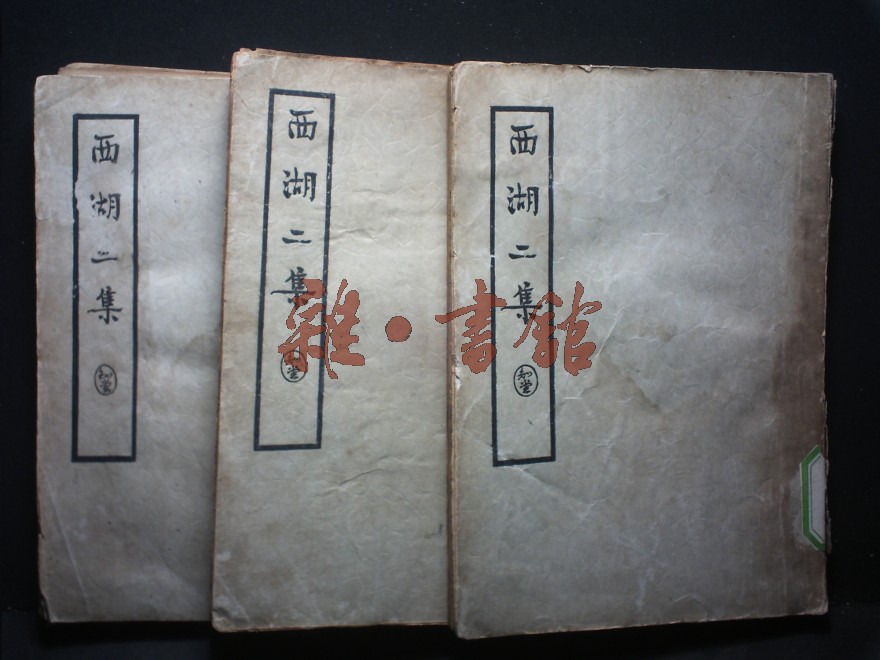 西湖二集
知堂
西湖二集
知堂
西湖二集
知堂
雜·書館